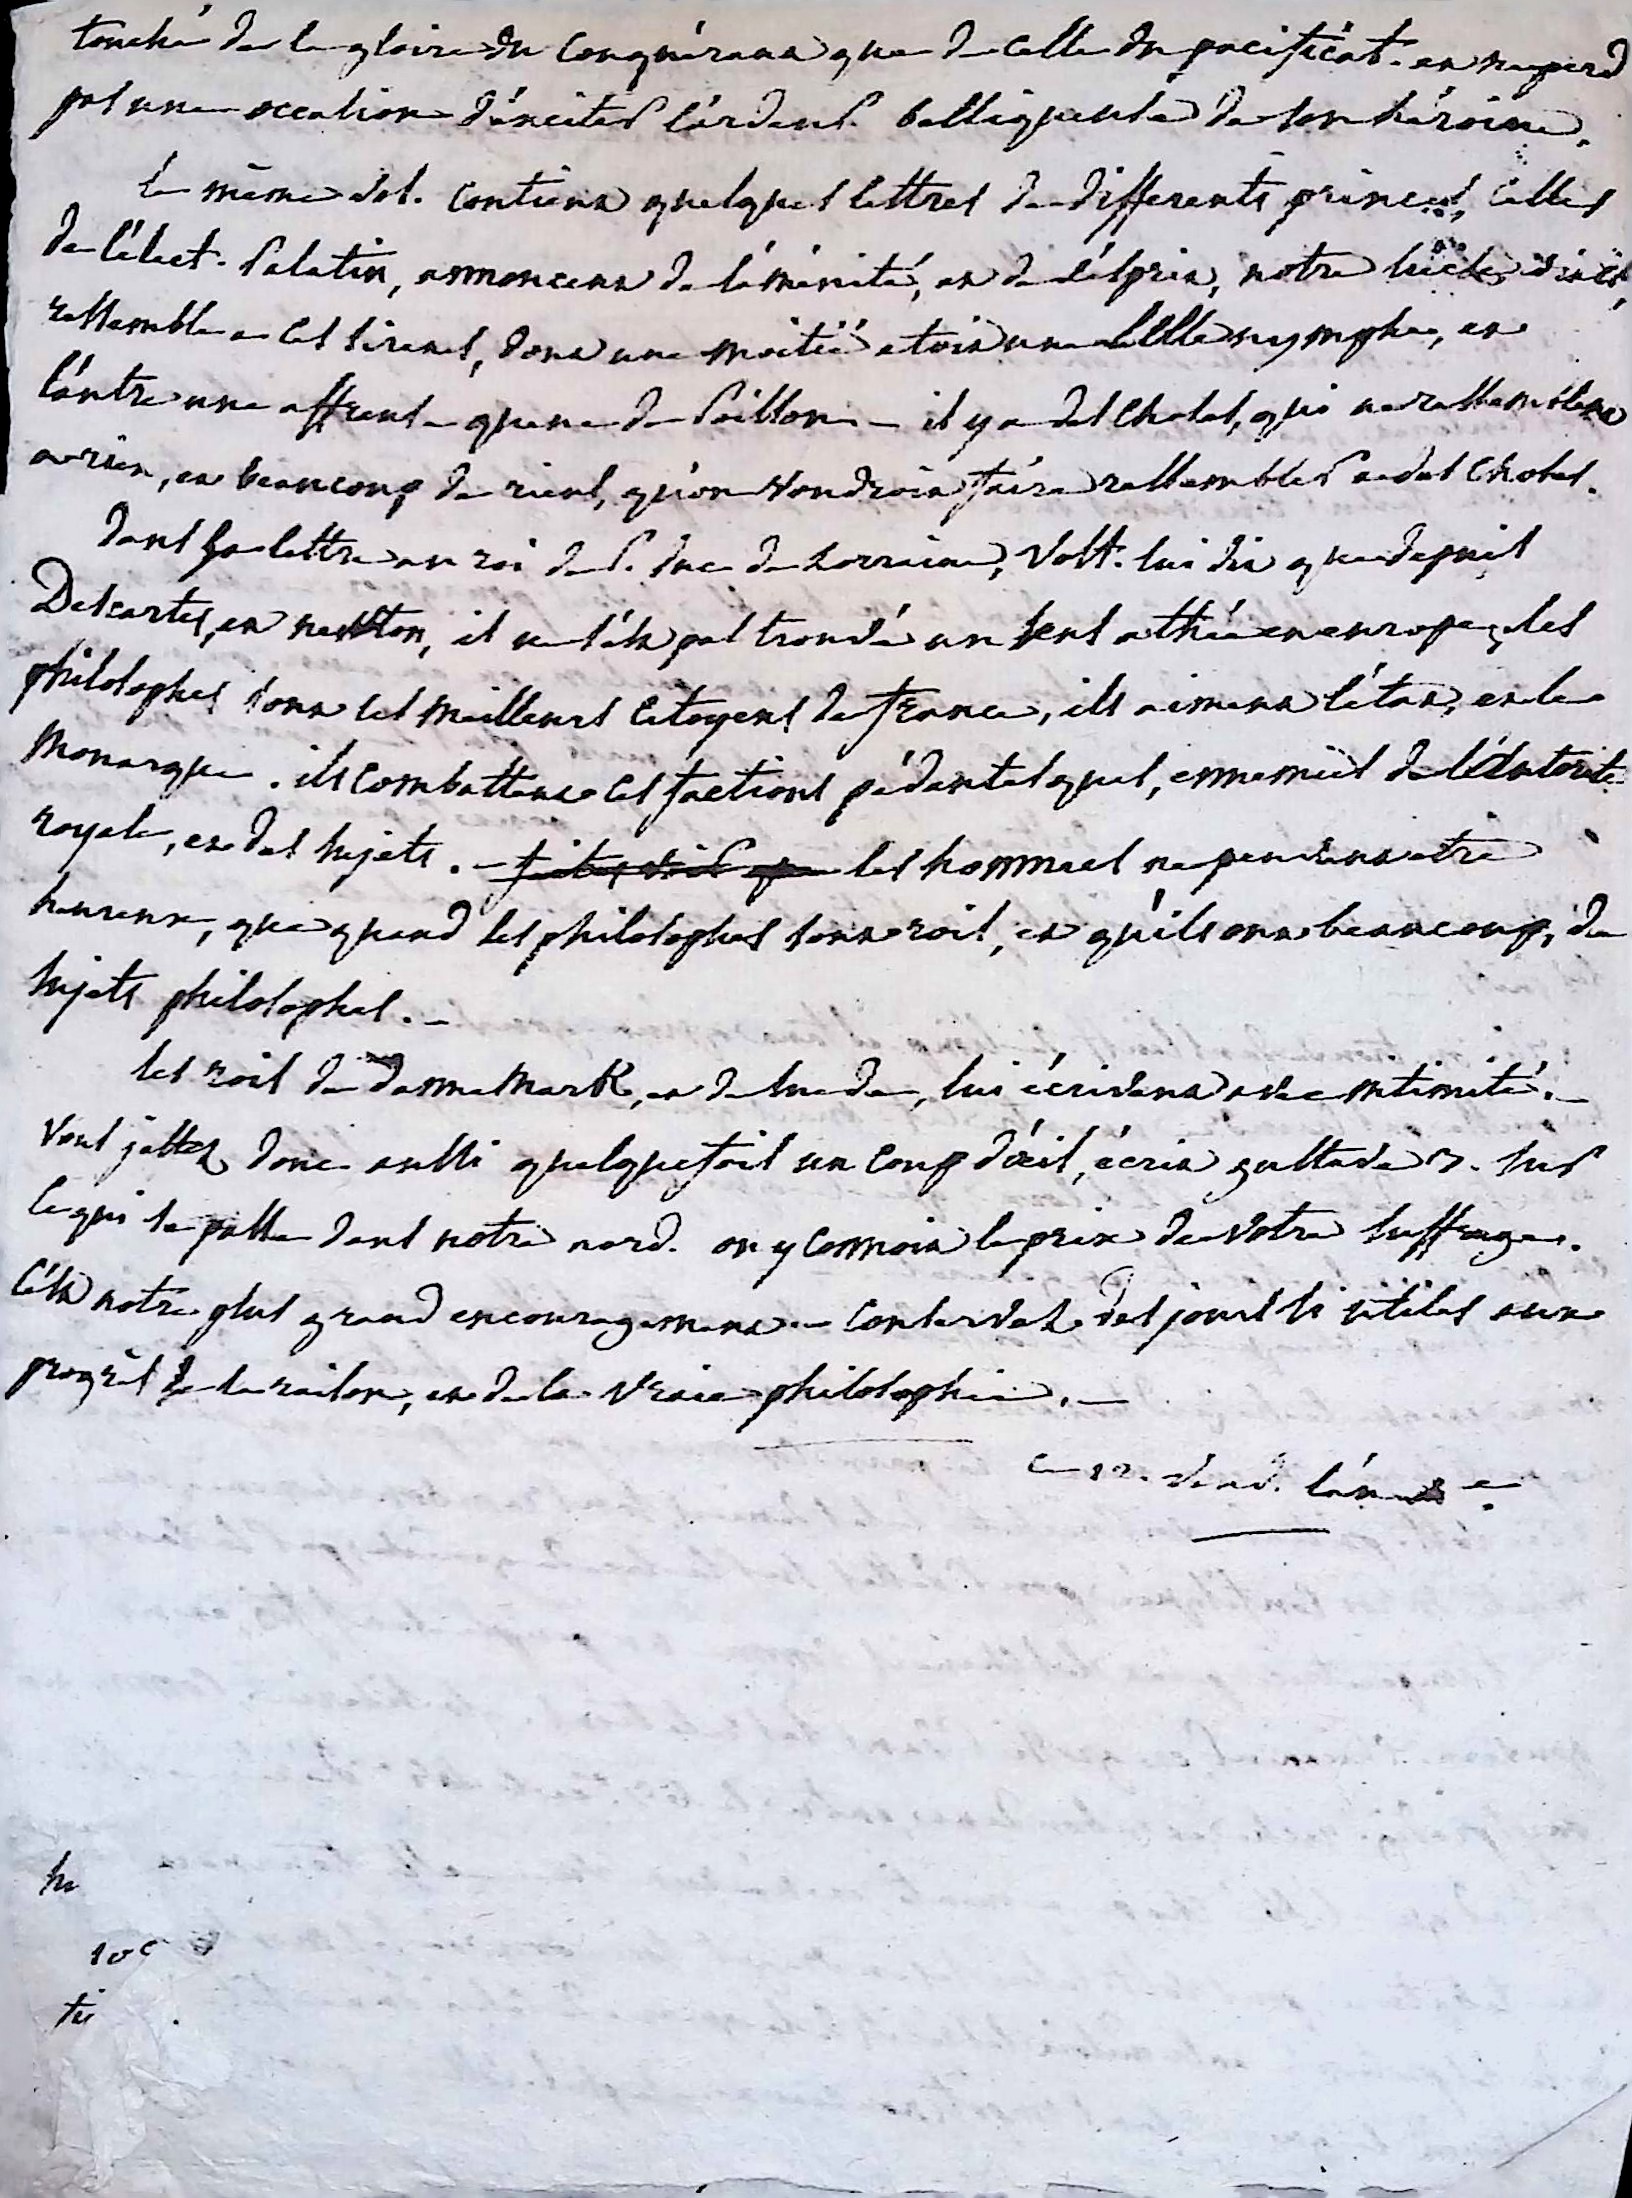 touché de la gloire du conquérant que de celle du pacificat. et ne perd
pas une occasion d'exciter l'ardeur belliqueuse de son héroine.
le même vol. contient quelques lettres de differents princes, celles
de l'élect. Palatin, annoncent de l'aménité, et de l'esprit, notre siecle dit il,
ressemble a ces sirenes, dont une moitié etoit une belle nymphe, et
l'autre une affreuse queue de poisson - il y a des choses, qui ne ressemblent
a rien, et beaucoup de riens, qu'on voudroit faire ressembler a des choses.
dans sa lettre au roi de P. duc de Lorraine, Volt. lui dit que depuis
Descartes, et newton, il ne s'est pas trouvé un seul athée en europe, les
philosophes sont les meilleurs citoyens de france, ils aiment l'état, et le
monarque. ils combattent les factions pédantesques, ennemies de l'autorité
royale, et des sujets. - les hommes ne peuvent etre
heureux, que quand les philosophes sont rois, et qu'ils ont beaucoup, de
sujets philosophes. -
les rois de dannemark, et de suede, lui écrivent avec intimité. -
Vous jettez donc aussi quelquefois un coup d'œil, écrit gustave 3. sur
ce qui se passe dans notre nord. on y connoit le prix de votre suffrage.
c'est notre plus grand encouragement - conservez des jours si utiles aux
progrès de la raison, et de la vraie philosophie. -
ce 12. vend. l'an